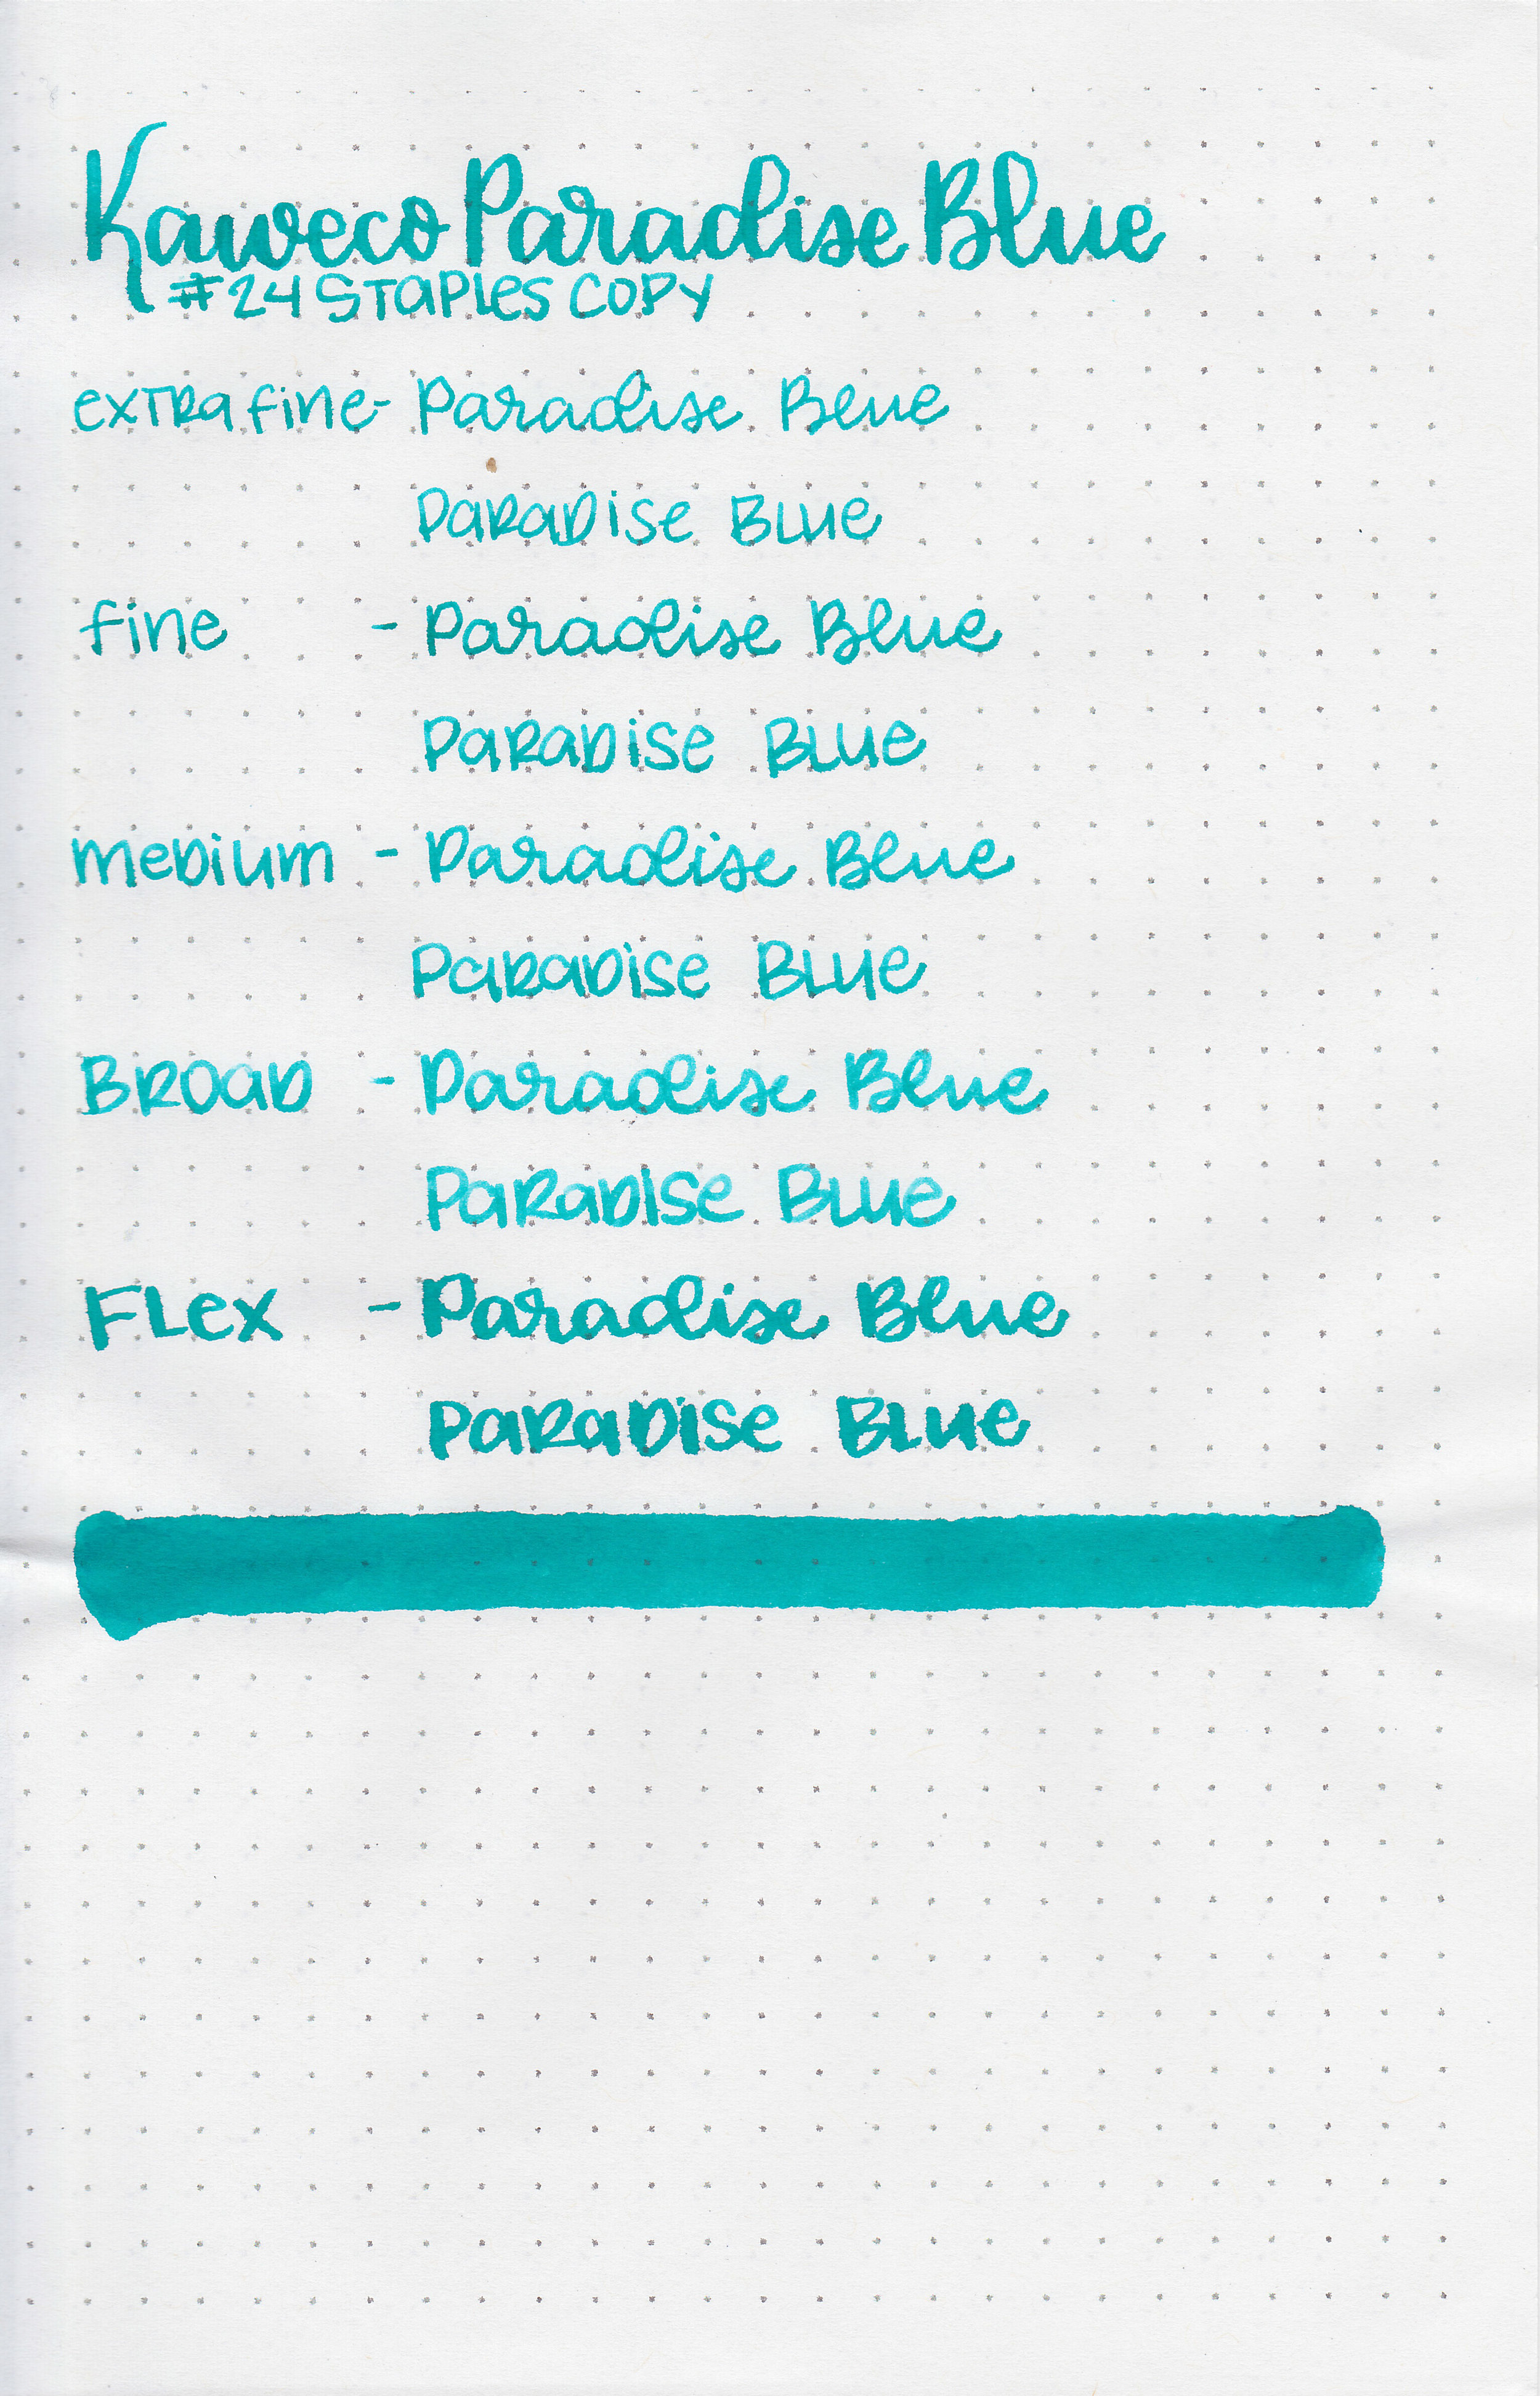 Kaweco Paradise Blue
#24 STaPles COPY
exTRa fine- Paradise Blue
PaRaDise BLue
fine - Paradise Blue
PaRaDise BLue
meDium - Paradise Blue
PaRaDise BLue
BROaD - Paradise Blue
PaRaDise BLue
FLex - Paradise Blue
PaRaDise BLue